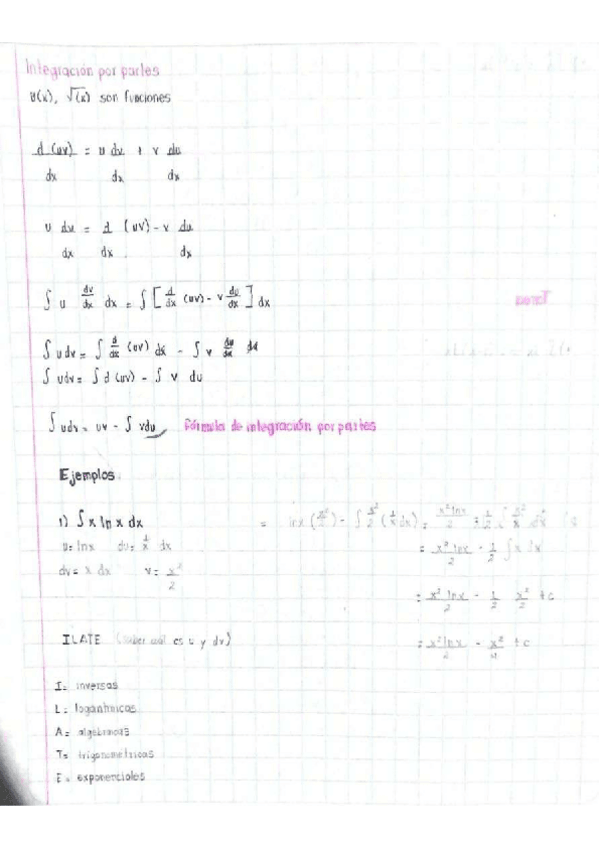 Integración por partes
u(x), √(x) son funciones
d (uv) / dx = u dv/dx + v du/dx
u du/dx = d/dx (uv) - v du/dx
∫ u dv/dx dx = ∫ [ d/dx (uv) - v du/dx ] dx
∫ u dv = ∫ d/dx (uv) dx - ∫ v du/dx dx
∫ u dv = ∫ d (uv) - ∫ v du
∫ u dv = uv - ∫ v du Fórmula de integración por partes
Ejemplos.
1) ∫ x ln x dx = lnx (x²/2) - ∫ x²/2 (1/x dx) =
u = lnx du = 1/x dx = x² lnx/2 - 1/2 ∫ x dx
dv = x dx v = x²/2
= x² lnx/2 - 1/2 x²/2 + c
ILATE (saber cual es u y dv) = x² lnx/2 - x²/4 + c
I = inversas
L = logarítmicas
A = algebraicas
T = trigonometricas
E = exponenciales
Tarea